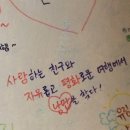 사랑하는 친구와
자유롭고 평화로운 여행에서
낭만을 찾다!